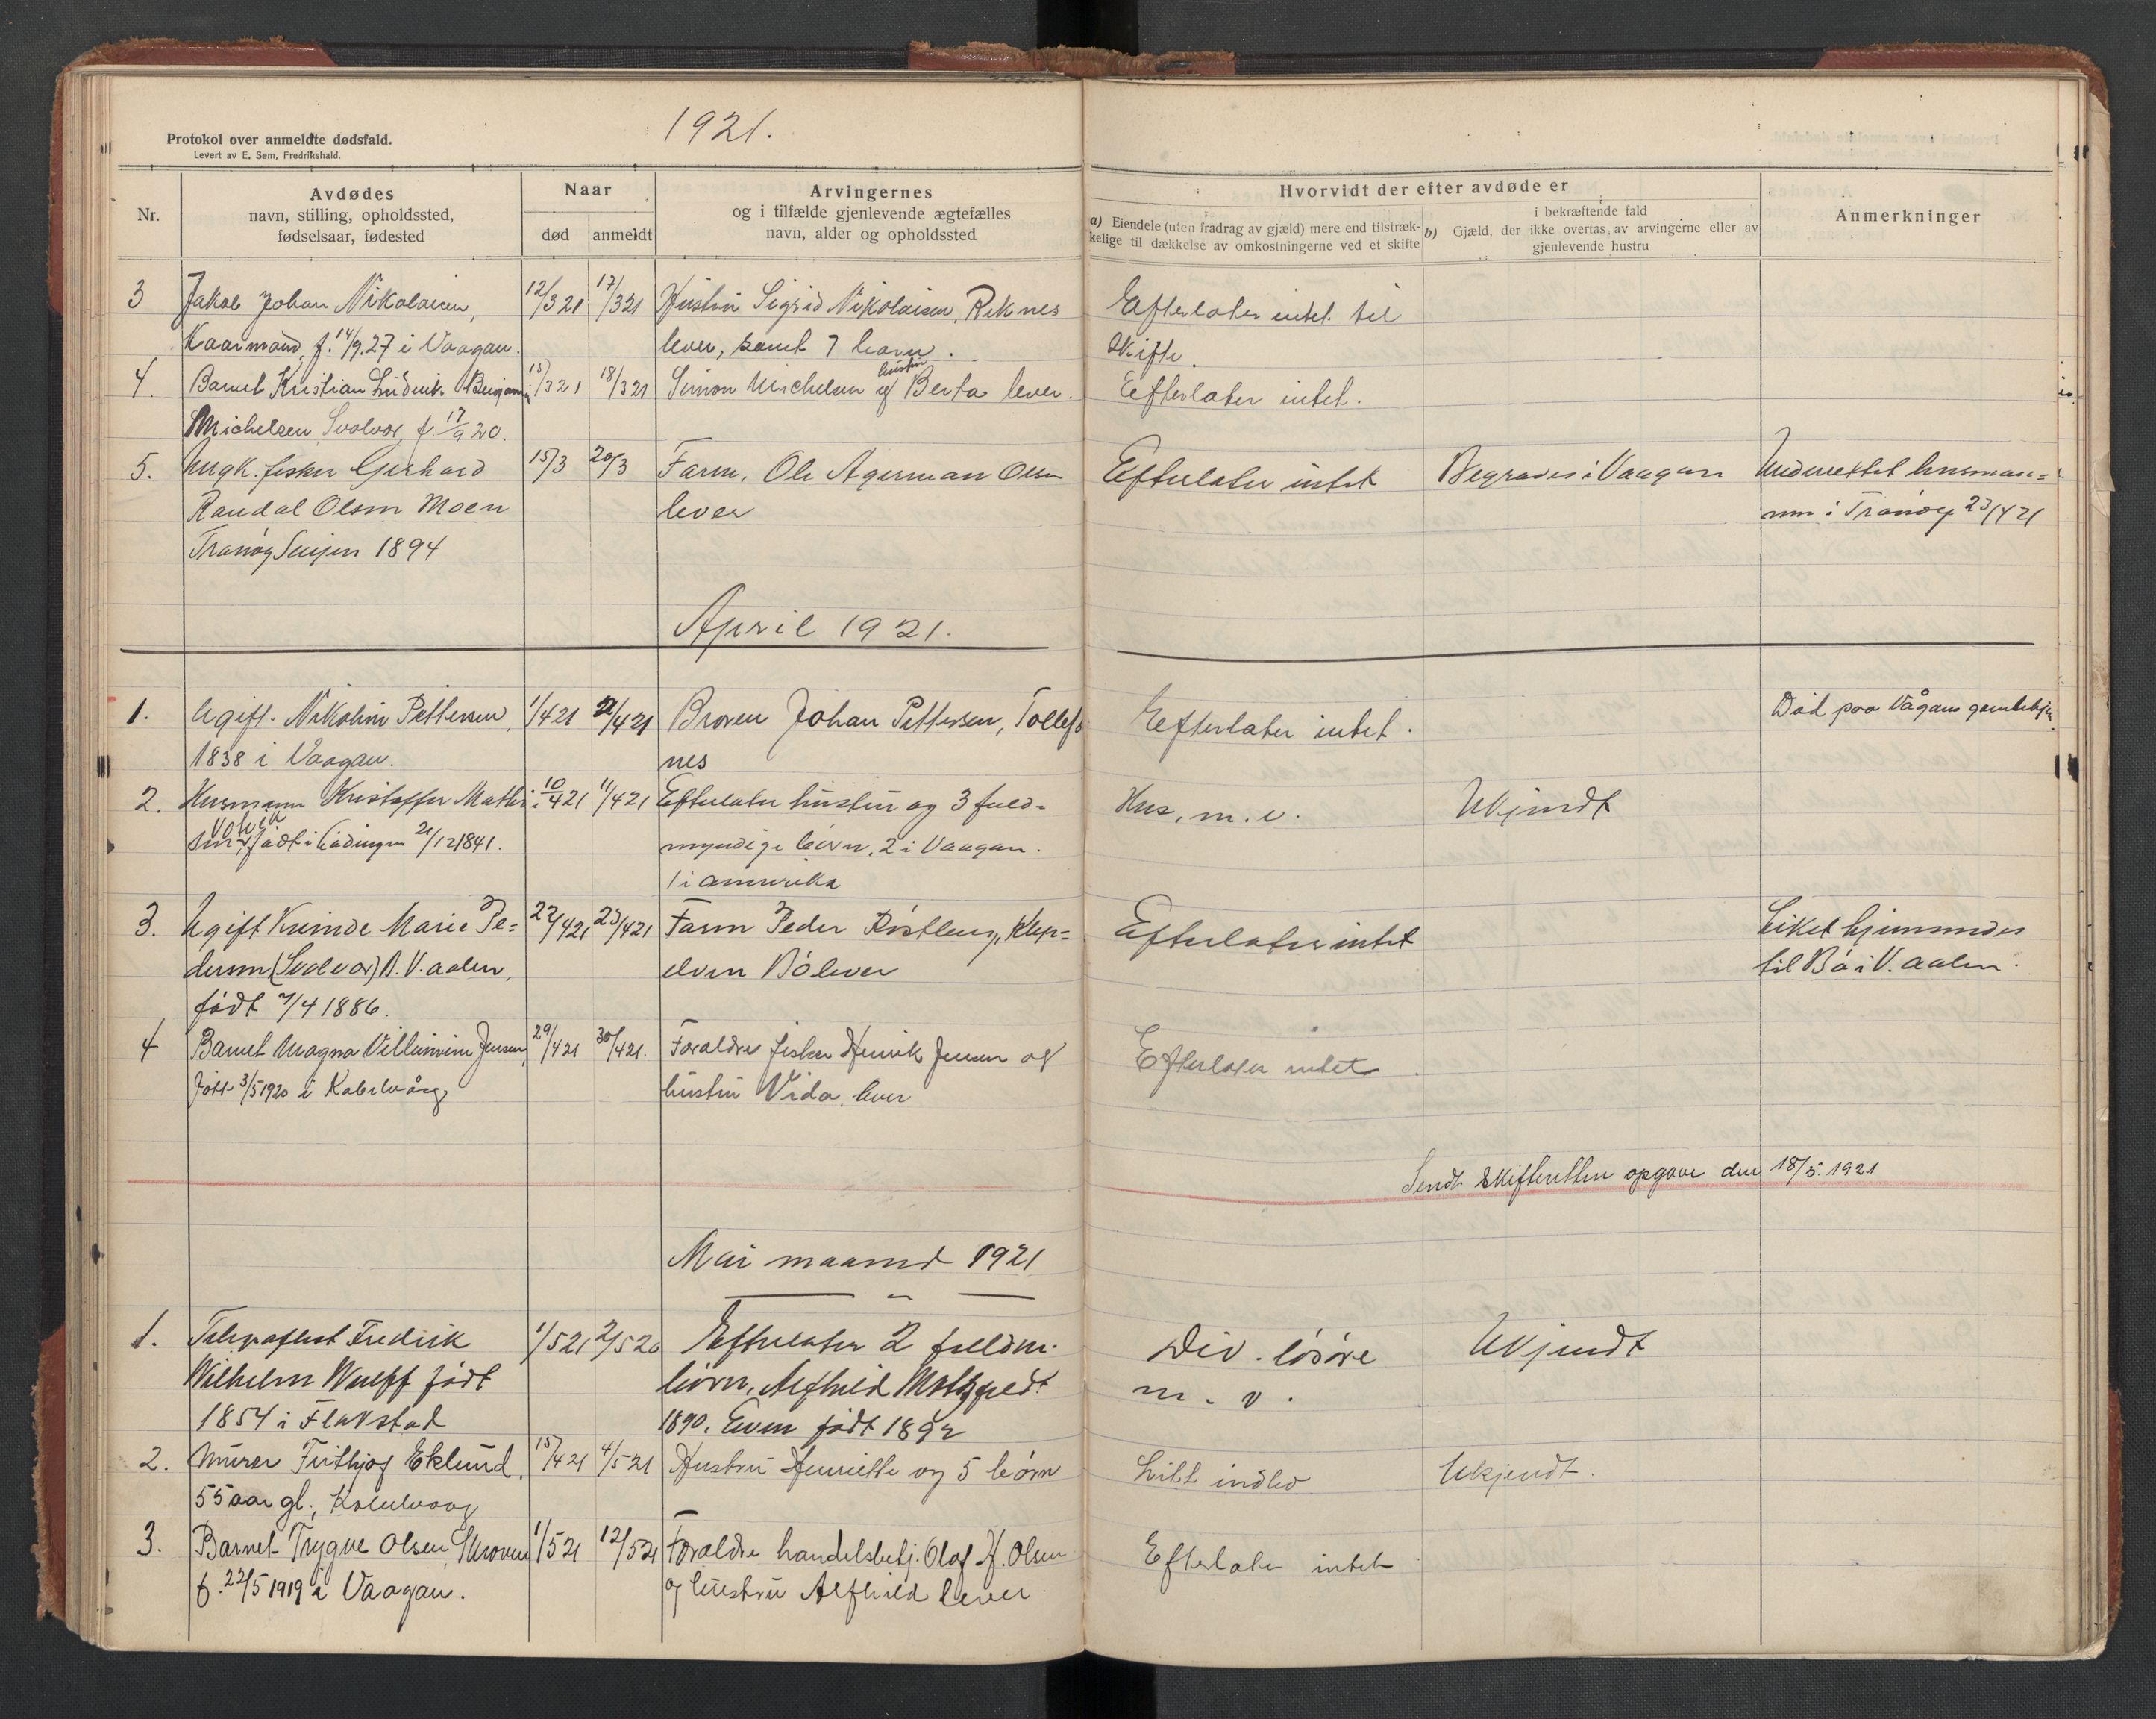 1921.
Protokol over anmeldte dødsfald.
Levert av E. Sem, Fredrikshald.
Nr.
Avdødes
navn, stilling, opholdssted,
fødselsaar, fødested
Naar
død anmeldt
Arvingernes
og i tilfælde gjenlevende ægtefælles
navn, alder og opholdssted
Hvorvidt der efter avdøde er
a) Eiendele (uten fradrag av gjæld) mere end tilstræk-
kelige til dækkelse av omkostningerne ved et skifte
i bekræftende fald
b) Gjæld, der ikke overtas, av arvingerne eller av
gjenlevende hustru
Anmerkninger
3 Jakob Johan Nikolaisen, 12/3 21 17/3 21 Hustru Sigrid Nikolaisen, Reknes Efterlater intet til
Kaarmand, f. 14/9.27 i Vaagan. lever, samt 7 barn. skifte.
4. Barnet Kristian Ludvik Benjamin 15/3 21 18/3 21 Simon Michelsen og hustru Berta lever. Efterlater intet.
Michelsen Svolvær, f. 17/9 20.
5. Ungk. fisker Gerhard 15/3 20/3 Farm. Ole Agerman Olsen Efterlater intet Begraves i Vaagan Underrettet lensman=
Randal Olsen Moen lever nen i Tranøy 23/4 21
Tranøy Senjen 1894
April 1921.
1. Ugift. Nikoline Pettersen, 1/4 21 2/4 21 Broren Johan Pettersen, Tollefs Efterlater intet. Død paa Vågans gamlehjem
1838 i Vaagan. nes
2. Husmann Kristoffer Mathi 10/4 21 11/4 21 Efterlater hustru og 3 fuld= Hus, m. v. Ukjendt
sen, født i Lødingen 21/12 1841. myndige børn, 2 i Vaagan.
1 i amerika
3. Ugift Kvinde Marie Pe= 22/4 21 23/4 21 Farm Peder Røstberg, Klep= Efterlater intet Liket hjemsendes
dersen (Svolvær) B. V. aalen, elven Bø lever til Bø i V. aalen.
født 7/4 1886.
4 Barnet Magna Villumine Jensen, 29/4 21 30/4 21. Forældre fisker Henrik Jensen og Efterlater intet
født 3/5 1920 i Kabelvåg hustru Vida, lever
Sendt skifteretten opgave den 18/5. 1921
Mai maaned 1921
1. Telegrafbest Fredrik 1/5 21 2/5 20 Efterlater 2 fuldm. Div. løsøre Ukjendt
Wilhelm Wulff født børn. Alfhild født m. v.
1854 i Flakstad 1890. Even født 1892
2. Murer Frithjof Eklund, 15/4 21 4/5 21 Hustru Henriette og 5 børn Litt indbo Ukjendt.
55 aar gl., Kabelvaag
3. Barnet Trygve Olsen, Skroven 1/5 21 12/5 21 Forældre handelsbetj. Olaf H. Olsen Efterlater intet
f. 22/5 1919 i Vaagan. og hustru Alfhild lever